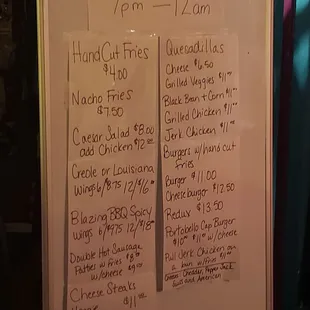 7pm — 12am
Hand Cut Fries
$4.00
Nacho Fries
$7.50
Caesar Salad $8.00
add Chicken $12.00
Creole or Louisiana
wings 6/$7.5 12/
Blazing BBQ Spicy
wings 6/$9.75 12/$18
Double Hot Sausage
Patties w/fries
w/cheese
Cheese Steaks
$11.00
Quesadillas
Cheese $6.50
Grilled Veggies $11.00
Black Bean + Corn $11
Grilled Chicken $11.00
Jerk Chicken $11.00
Burgers w/hand cut
fries
Burger $11.00
Cheeseburger $12.50
Redux $13.50
Portobello Cap Burger
$10.00 $11.00 w/cheese
Pull Jerk Chicken on
a bun w/fries $11.00
Cheese: Cheddar, Pepper Jack
Swiss and American